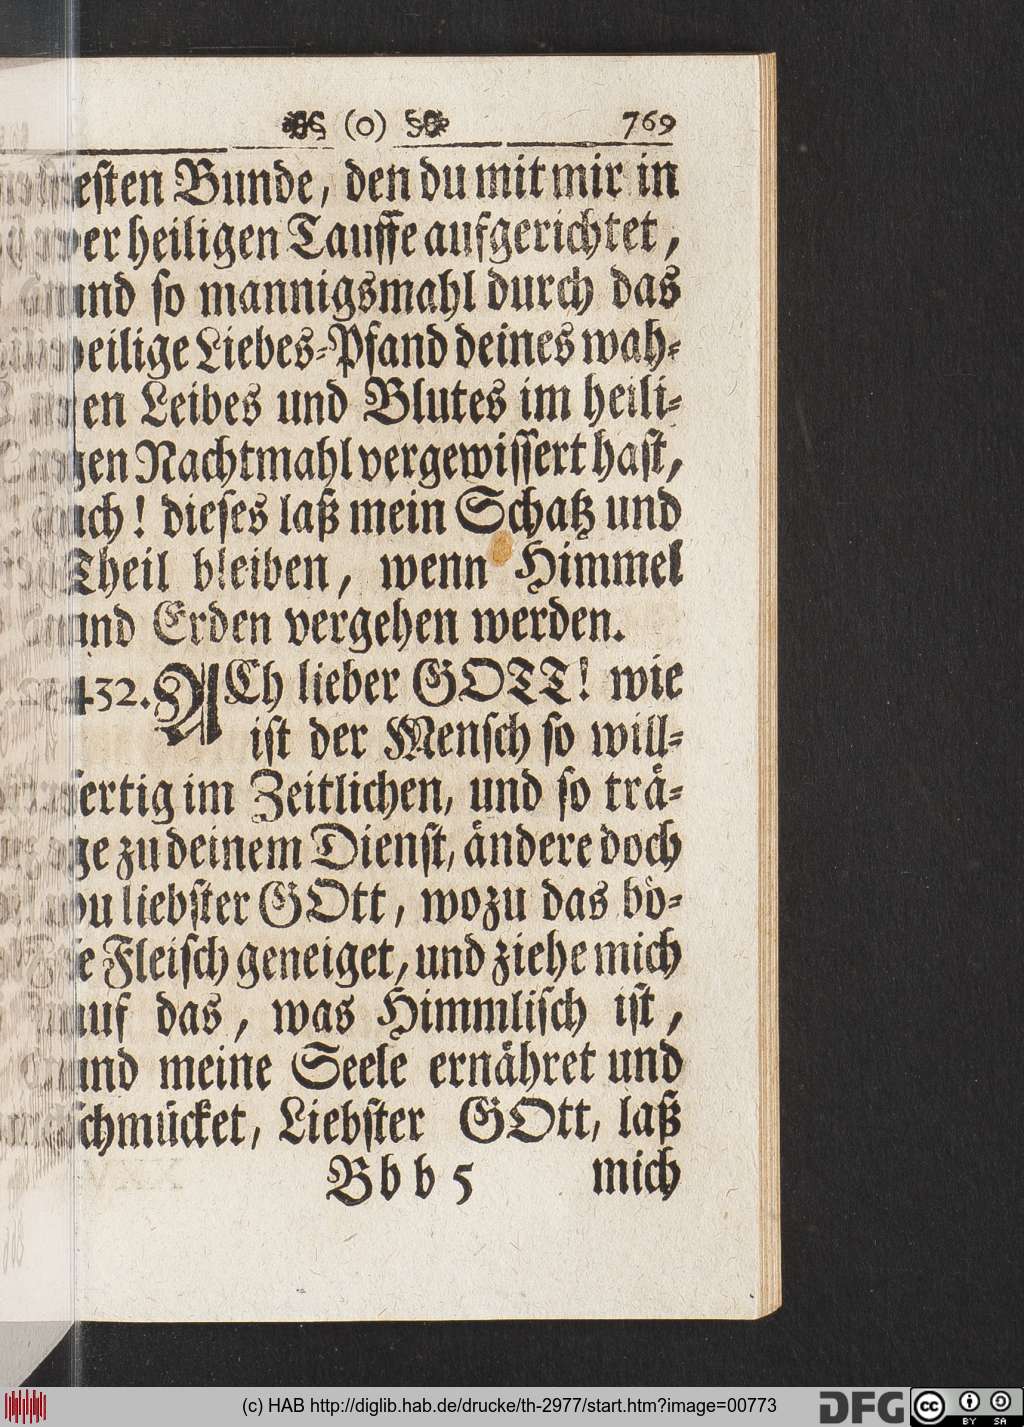 (o) 769
esten Bunde, den du mit mir in
er heiligen Tauffe aufgerichtet,
und so mannigsmahl durch das
heilige Liebes-Pfand deines wah-
ren Leibes und Blutes im heili-
gen Nachtmahl vergewissert hast,
ach! dieses laß mein Schatz und
Theil bleiben, wenn Himmel
und Erden vergehen werden.
432. ACh lieber GOTT! wie
ist der Mensch so will-
fertig im Zeitlichen, und so trä-
ge zu deinem Dienst, ändere doch
du liebster GOtt, wozu das bö-
se Fleisch geneiget, und ziehe mich
auf das, was Himmlisch ist,
und meine Seele ernähret und
schmücket, Liebster GOtt, laß
Bbb 5 mich
(c) HAB http://diglib.hab.de/drucke/th-2977/start.htm?image=00773
DFG
cc BY SA